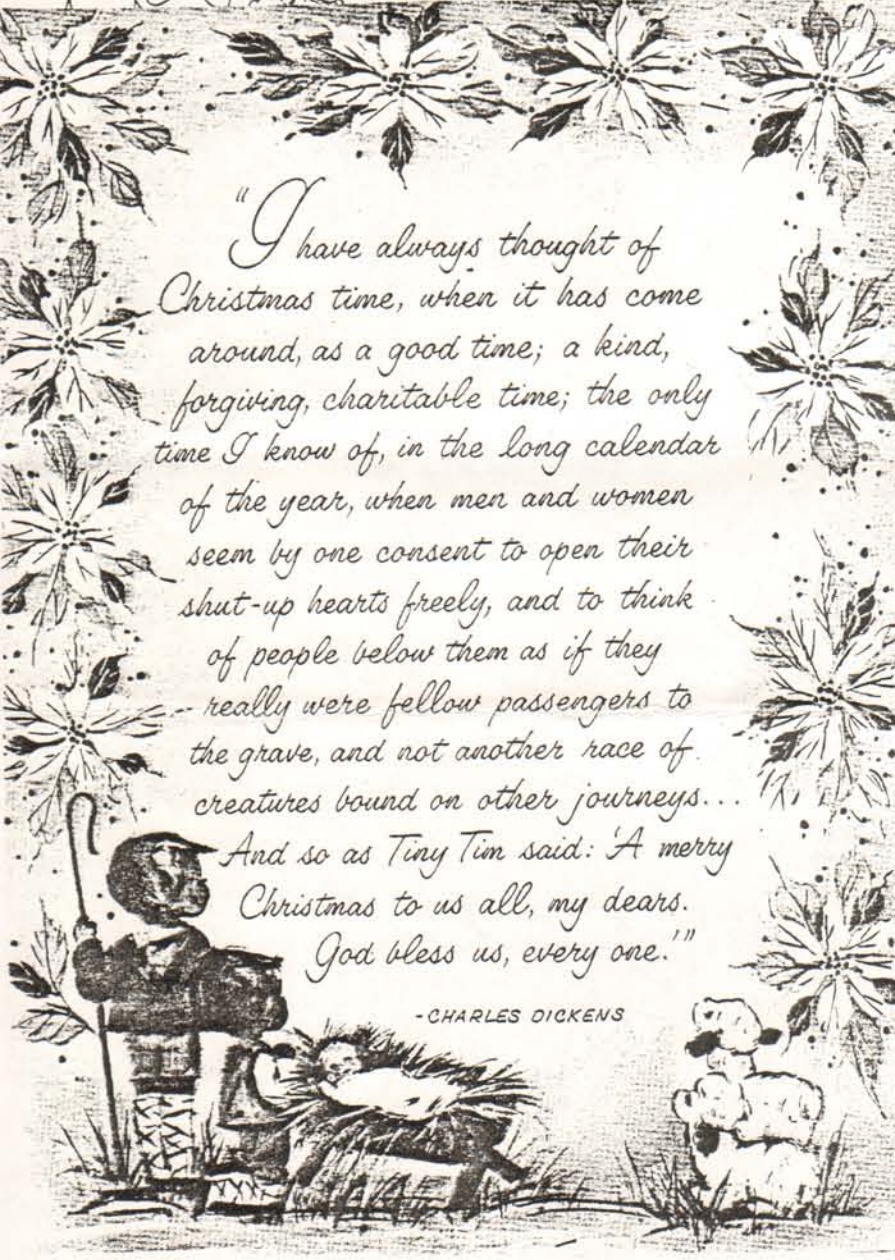 "I have always thought of
Christmas time, when it has come
around, as a good time; a kind,
forgiving, charitable time; the only
time I know of, in the long calendar
of the year, when men and women
seem by one consent to open their
shut-up hearts freely, and to think
of people below them as if they
really were fellow passengers to
the grave, and not another race of
creatures bound on other journeys...
And so as Tiny Tim said: 'A merry
Christmas to us all, my dears.
God bless us, every one.'"
-CHARLES DICKENS